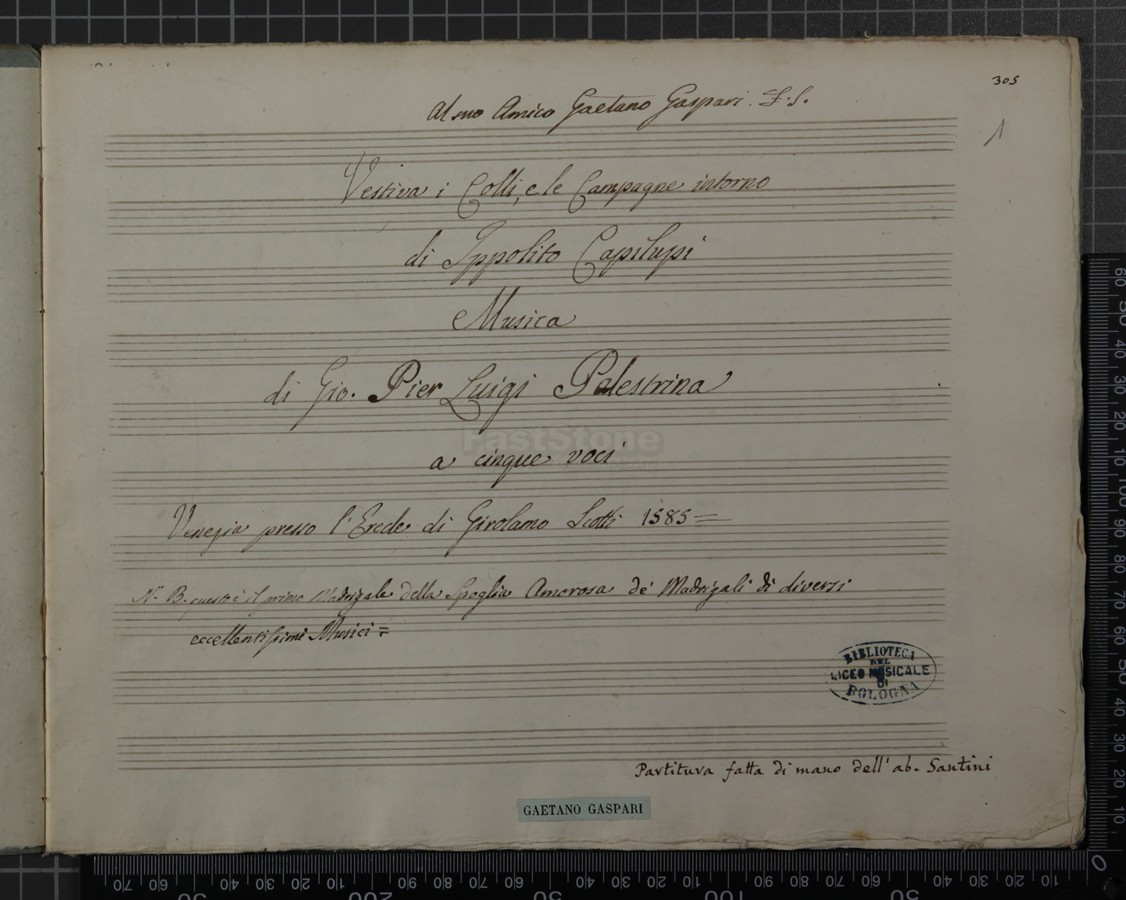 305
1
Al suo Amico Gaetano Gaspari. F. S.
Vestiva i Colli, e le Campagne intorno
di Ippolito Capilupi
Musica
di Gio. Pier Luigi Palestrina
a cinque voci
FastStone
Venezia presso l'Erede di Girolamo Scotti 1585=
N. B. questo è il primo Madrigale della Spoglia Amorosa de' Madrigali di diversi
eccellentissimi Musici=
BIBLIOTECA
DEL
LICEO MUSICALE
DI
BOLOGNA
Partitura fatta di mano dell'ab. Santini
GAETANO GASPARI